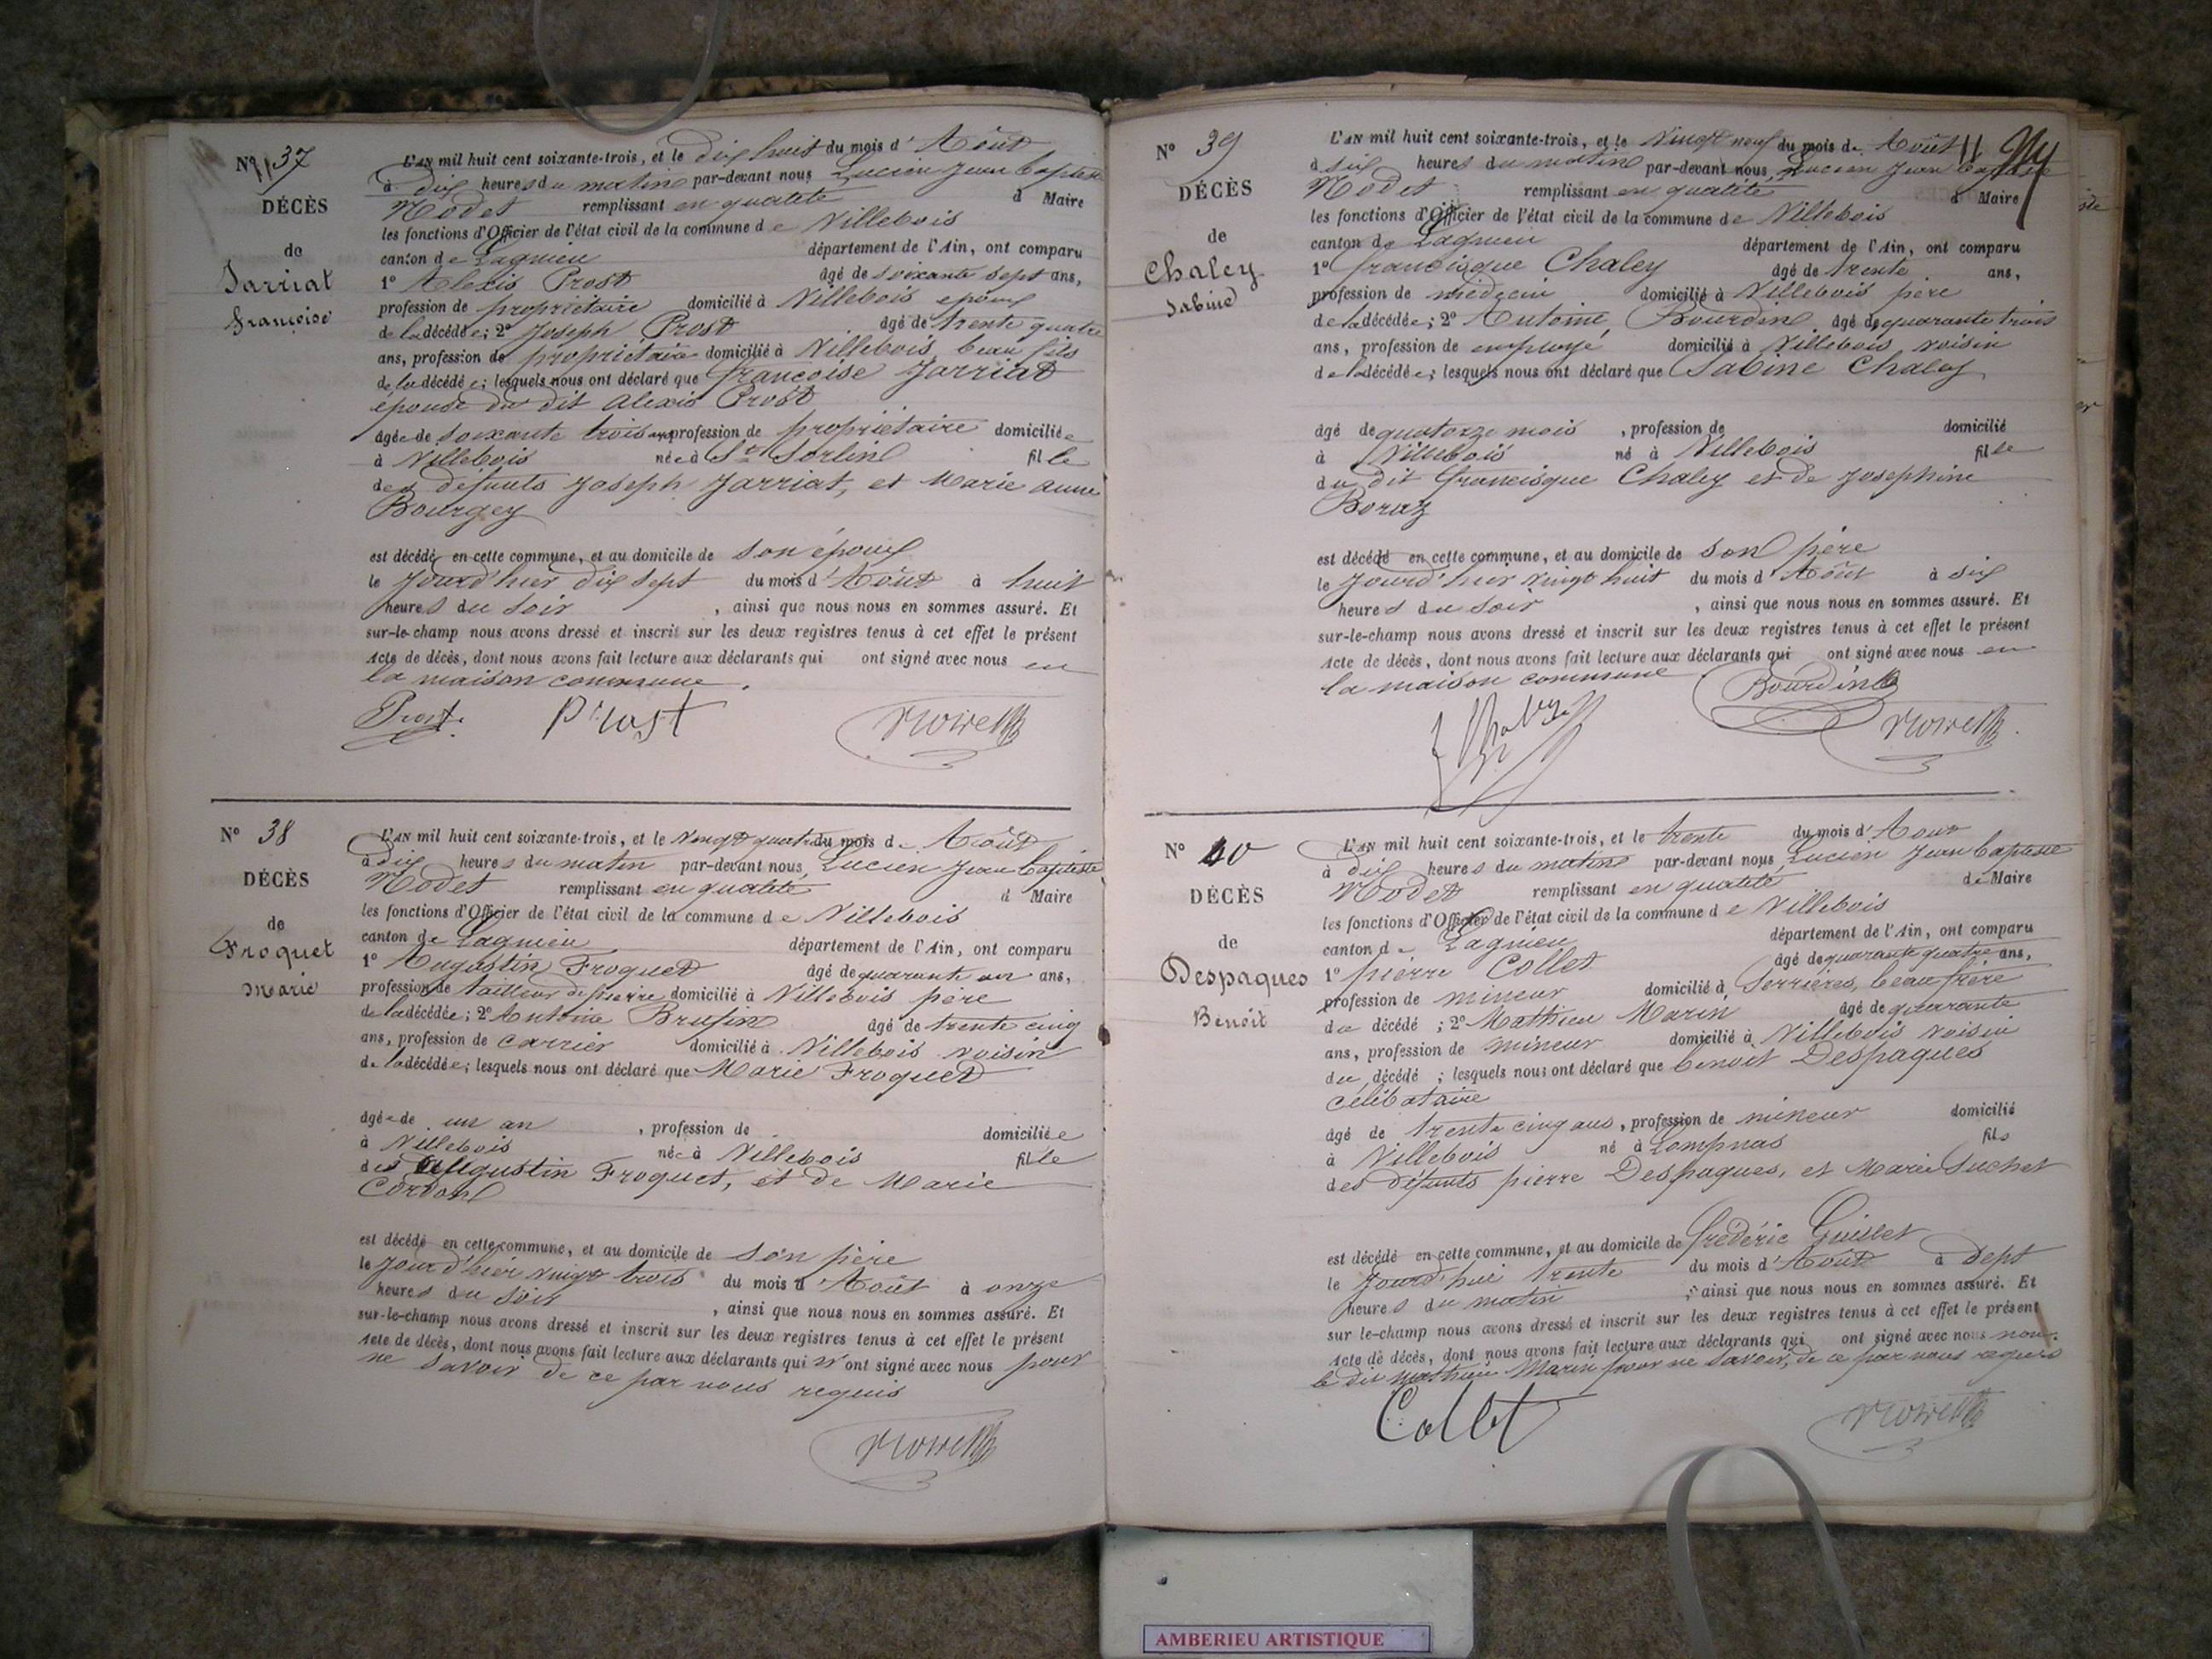 Nº 37
DÉCÈS
de
Jarriat
françoise
L'AN mil huit cent soixante-trois, et le dix huit du mois d'Août
à dix heures du matin par-devant nous Lucien Jean baptiste
Nodet remplissant en qualité d Maire
les fonctions d'Officier de l'état civil de la commune de Villebois
canton de Lagnieu département de l'Ain, ont comparu
1º Alexis Prost âgé de soixante sept ans,
profession de propriétaire domicilié à Villebois époux
de la décédée; 2º Joseph Prost âgé de trente quatre
ans, profession de propriétaire domicilié à Villebois beau fils
de la décédée; lesquels nous ont déclaré que françoise Jarriat
épouse du dit alexis Prost
âgée de soixante trois ans profession de propriétaire domiciliée
à Villebois née à St Sorlin fille
des défunts Joseph Jarriat, et Marie anne
Bourgey
est décédé en cette commune, et au domicile de son époux
le jourd'hier dix sept du mois d'Août à huit
heures du soir , ainsi que nous nous en sommes assuré. Et
sur-le-champ nous avons dressé et inscrit sur les deux registres tenus à cet effet le présent
Acte de décès, dont nous avons fait lecture aux déclarants qui ont signé avec nous en
la maison commune.
Prost Prost
Nº 38
DÉCÈS
de
Froquet
Marie
L'AN mil huit cent soixante-trois, et le vingt quatre du mois d. Août
à dix heures du matin par-devant nous, Lucien Jean baptiste
Nodet remplissant en qualité d Maire
les fonctions d'Officier de l'état civil de la commune de Villebois
canton de Lagnieu département de l'Ain, ont comparu
1º Augustin Froquet âgé de quarante un ans,
profession de tailleur de pierre domicilié à Villebois père
de la décédée; 2º Antoine âgé de trente cinq
ans, profession de carrier domicilié à Villebois voisin
de la décédée; lesquels nous ont déclaré que Marie Froquet
âgée de un an , profession de domiciliée
à Villebois née à Villebois fille
des augustin Froquet, et de Marie
Cordon
est décédé en cette commune, et au domicile de son père
le jourd'hier vingt trois du mois d'Août à onze
heures du soir , ainsi que nous nous en sommes assuré. Et
sur-le-champ nous avons dressé et inscrit sur les deux registres tenus à cet effet le présent
Acte de décès, dont nous avons fait lecture aux déclarants qui n'ont signé avec nous pour
ne savoir de ce par nous requis
Nº 39
DÉCÈS
de
Chaley
Sabine
L'AN mil huit cent soixante-trois, et le vingt neuf du mois de Août
à six heures du matin par-devant nous, Lucien Jean baptiste
Nodet remplissant en qualité d Maire
les fonctions d'Officier de l'état civil de la commune de Villebois
canton de Lagnieu département de l'Ain, ont comparu
1º francisque Chaley âgé de trente ans,
profession de médecin domicilié à Villebois père
de la décédée; 2º Antoine Bourdin âgé de quarante trois
ans, profession de employé domicilié à Villebois voisin
de la décédée; lesquels nous ont déclaré que Sabine Chaley
âgé de quatorze mois , profession de domicilié
à Villebois né à Villebois fille
du dit francisque Chaley et de Josephine
Boraz
est décédé en cette commune, et au domicile de son père
le jourd'hier vingt huit du mois d'Août à six
heures du soir , ainsi que nous nous en sommes assuré. Et
sur-le-champ nous avons dressé et inscrit sur les deux registres tenus à cet effet le présent
Acte de décès, dont nous avons fait lecture aux déclarants qui ont signé avec nous en
la maison commune
Bourdin
Nº 40
DÉCÈS
de
Despaques
Benoit
L'AN mil huit cent soixante-trois, et le trente du mois d'Aout
à dix heures du matin par-devant nous Lucien Jean baptiste
Nodet remplissant en qualité de Maire
les fonctions d'Officier de l'état civil de la commune de Villebois
canton de Lagnieu département de l'Ain, ont comparu
1º pierre Collet âgé de quarante quatre ans,
profession de mineur domicilié à Serrières, beau frère
du décédé ; 2º Mathieu Marin âgé de quarante
ans, profession de mineur domicilié à Villebois voisin
du décédé ; lesquels nous ont déclaré que benoit Despaques
célibataire
âgé de trente cinq ans, profession de mineur domicilié
à Villebois né à Lompnas fils
des défunts pierre Despaques, et Marie Suchet
est décédé en cette commune, et au domicile de frédéric Guillet
le jourd'hui trente du mois d'Août à sept
heures du matin ; ainsi que nous nous en sommes assuré. Et
sur le-champ nous avons dressé et inscrit sur les deux registres tenus à cet effet le présent
Acte de décès, dont nous avons fait lecture aux déclarants qui ont signé avec nous non
le dit Mathieu Marin pour ne savoir, de ce par nous requis
Collet
AMBERIEU ARTISTIQUE